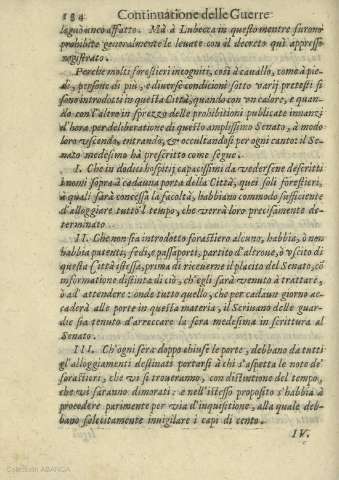 184 Continuatione delle Guerre
lagnò anco affatto. Mà à Lubecca in questo mentre furono
prohibite generalmente le leuate con il decreto quì appresso
registrato.
Perche molti forastieri incogniti, così à cauallo, come à pie-
di, persone di più, e diuerse conditioni sotto varij pretesti si
sono introdotti in questa Città, quando con vn calore, e quan-
do con l'altro in sprezzo delle prohibitioni publicate innanzi
d'hora per deliberatione di questo amplissimo Senato, à modo
loro vscendo, entrando, & occultandosi per ogni canto: il Se-
nato medesimo hà prescritto come segue.
I. Che in dodici hospitij capacissimi da vedersene descritti
i nomi sopra à cadauna porta della Città, quei soli forestieri,
à quali sarà concessa la facoltà, habbiano commodo sufficiente
d'alloggiare tutto 'l tempo, che verrà loro precisamente de-
terminato.
II. Che non sia introdotto forastiero alcuno, habbia, ò non
habbia patenti, fedi, e passaporti, partito d'altrone, ò vscito di
questa Città istessa, prima di riceuerne il placito del Senato, cõ
informatione distinta di ciò, ch'egli sarà venuto à trattare,
ò ad attendere: onde tutto quello, che per cadaun giorno ac-
caderà alle porte in questa materia, il Scriuano delle guar-
die sia tenuto d'arreccare la sera medesima in scrittura al
Senato.
III. Ch'ogni sera doppo chiuse le porte, debbano da tutti
gl'alloggiamenti destinati portarsi à chi s'aspetta le note de'
forastieri, che vi si troueranno, con distintione del tempo,
che vi saranno dimorati: e nell'istesso proposito s'habbia à
procedere parimente per via d'inquisitione, alla quale deb-
bano solecitamente inuigilare i capi di cento.
IV.
Colección ABANCA